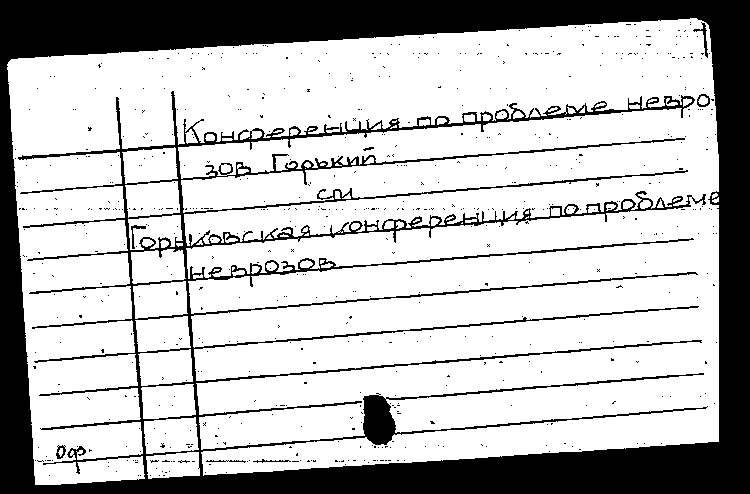 Конференция по проблеме невро
зов Горький
см
Горьковская конференция по проблеме
неврозов